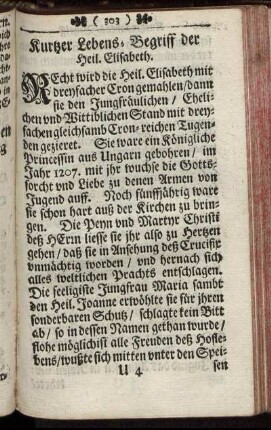 ( 303 )
Kurtzer Lebens-Begriff der
Heil. Elisabeth.
REcht wird die Heil. Elisabeth mit
dreyfacher Cron gemahlen / dann
sie den Jungfräulichen / Eheli-
chen und Wittiblichen Stand mit drey-
fachen gleichsamb Cron-reichen Tugen-
den gezieret. Sie ware ein Königliche
Princessin aus Ungarn gebohren / im
Jahr 1207. mit jhr wuchse die Gotts-
forcht und Liebe zu denen Armen von
Jugend auff. Noch fünffjährig ware
sie schon hart auß der Kirchen zu brin-
gen. Die Peyn und Martyr Christi
deß HErrn liesse sie jhr also zu Hertzen
gehen / daß sie in Ansehung deß Crucifix
vnmächtig worden / und hernach sich
alles weltlichen Prachts entschlagen.
Die seeligiste Jungfrau Maria sambt
den Heil. Joanne erwöhlte sie für jhren
sonderbaren Schutz / schlagte kein Bitt
ab / so in dessen Namen gethan wurde /
flohe möglichist alle Freuden deß Hofle-
bens / wußte sich mitten vnter den Spei-
U 4
sen